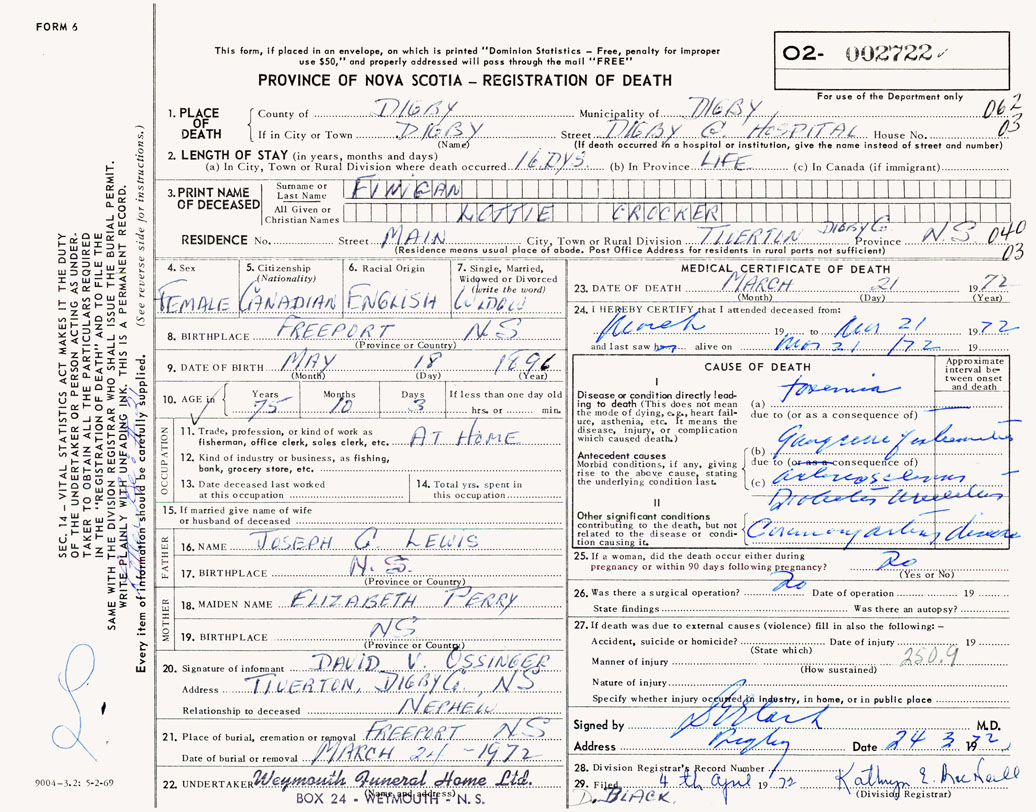 FORM 6
This form, if placed in an envelope, on which is printed "Dominion Statistics – Free, penalty for improper
use $50," and properly addressed will pass through the mail "FREE"
PROVINCE OF NOVA SCOTIA – REGISTRATION OF DEATH
O2- 002722
For use of the Department only
062
03
1. PLACE OF DEATH
County of DIGBY Municipality of DIGBY
If in City or Town DIGBY Street DIGBY G. HOSPITAL House No.
(Name) (If death occurred in a hospital or institution, give the name instead of street and number)
2. LENGTH OF STAY (in years, months and days)
(a) In City, Town or Rural Division where death occurred 16 DYS. (b) In Province LIFE (c) In Canada (if immigrant)
3. PRINT NAME OF DECEASED
Surname or Last Name FINIGAN
All Given or Christian Names LOTTIE CROCKER
RESIDENCE No. Street MAIN City, Town or Rural Division TIVERTON DIGBY Co. Province N.S 040
(Residence means usual place of abode. Post Office Address for residents in rural parts not sufficient) 03
4. Sex FEMALE
5. Citizenship (Nationality) CANADIAN
6. Racial Origin ENGLISH
7. Single, Married, Widowed or Divorced (write the word) WIDOW
8. BIRTHPLACE FREEPORT NS
(Province or Country)
9. DATE OF BIRTH MAY 18 1896
(Month) (Day) (Year)
10. AGE in Years 75 Months 10 Days 3 If less than one day old hrs. or min.
OCCUPATION
11. Trade, profession or kind of work as fisherman, office clerk, sales clerk, etc. AT HOME
12. Kind of industry or business, as fishing, bank, grocery store, etc.
13. Date deceased last worked at this occupation
14. Total yrs. spent in this occupation
15. If married give name of wife or husband of deceased
FATHER
16. NAME JOSEPH G LEWIS
17. BIRTHPLACE N.S.
(Province or Country)
MOTHER
18. MAIDEN NAME ELIZABETH PERRY
19. BIRTHPLACE NS
(Province or Country)
20. Signature of informant DAVID V. OSSINGER
Address TIVERTON, DIGBY Co., NS
Relationship to deceased NEPHEW
21. Place of burial, cremation or removal FREEPORT NS
Date of burial or removal MARCH 24 - 1972
22. UNDERTAKER Weymouth Funeral Home Ltd.
(Name and address)
BOX 24 - WEYMOUTH - N.S.
MEDICAL CERTIFICATE OF DEATH
23. DATE OF DEATH MARCH 21 1972
(Month) (Day) (Year)
24. I HEREBY CERTIFY that I attended deceased from:
March 19 to Mar 21 1972
and last saw her alive on Mar 21 /72 19
CAUSE OF DEATH
Approximate interval between onset and death
I
Disease or condition directly leading to death (This does not mean the mode of dying, e.g., heart failure, asthenia, etc. It means the disease, injury, or complication which caused death.)
(a) toxemia
due to (or as a consequence of)
Antecedent causes
Morbid conditions, if any, giving rise to the above cause, stating the underlying condition last.
(b) Gangrene of extremities
due to (or as a consequence of)
(c) arteriosclerosis
Diabetes Mellitus
II
Other significant conditions contributing to the death, but not related to the disease or condition causing it.
Coronary artery disease
25. If a woman, did the death occur either during pregnancy or within 90 days following pregnancy? No
(Yes or No)
26. Was there a surgical operation? No Date of operation 19
State findings Was there an autopsy?
27. If death was due to external causes (violence) fill in also the following:–
Accident, suicide or homicide? Date of injury 19
(State which)
Manner of injury 250.9
(How sustained)
Nature of injury
Specify whether injury occurred in industry, in home, or in public place
Signed by M.D.
Address Digby Date 24 3 1972
28. Division Registrar's Record Number 7
29. Filed 4th April 1972 Kathryn E. MacNeill
D. BLACK. (Division Registrar)
SEC. 14 – VITAL STATISTICS ACT MAKES IT THE DUTY
OF THE UNDERTAKER OR PERSON ACTING AS UNDER-
TAKER TO OBTAIN ALL THE PARTICULARS REQUIRED
IN THE "REGISTRATION OF DEATH" AND TO FILE THE
SAME WITH THE DIVISION REGISTRAR WHO SHALL ISSUE THE BURIAL PERMIT.
WRITE PLAINLY WITH UNFADING INK. THIS IS A PERMANENT RECORD.
Every item of information should be carefully supplied. (See reverse side for instructions.)
9004-3.2: 5-2-69